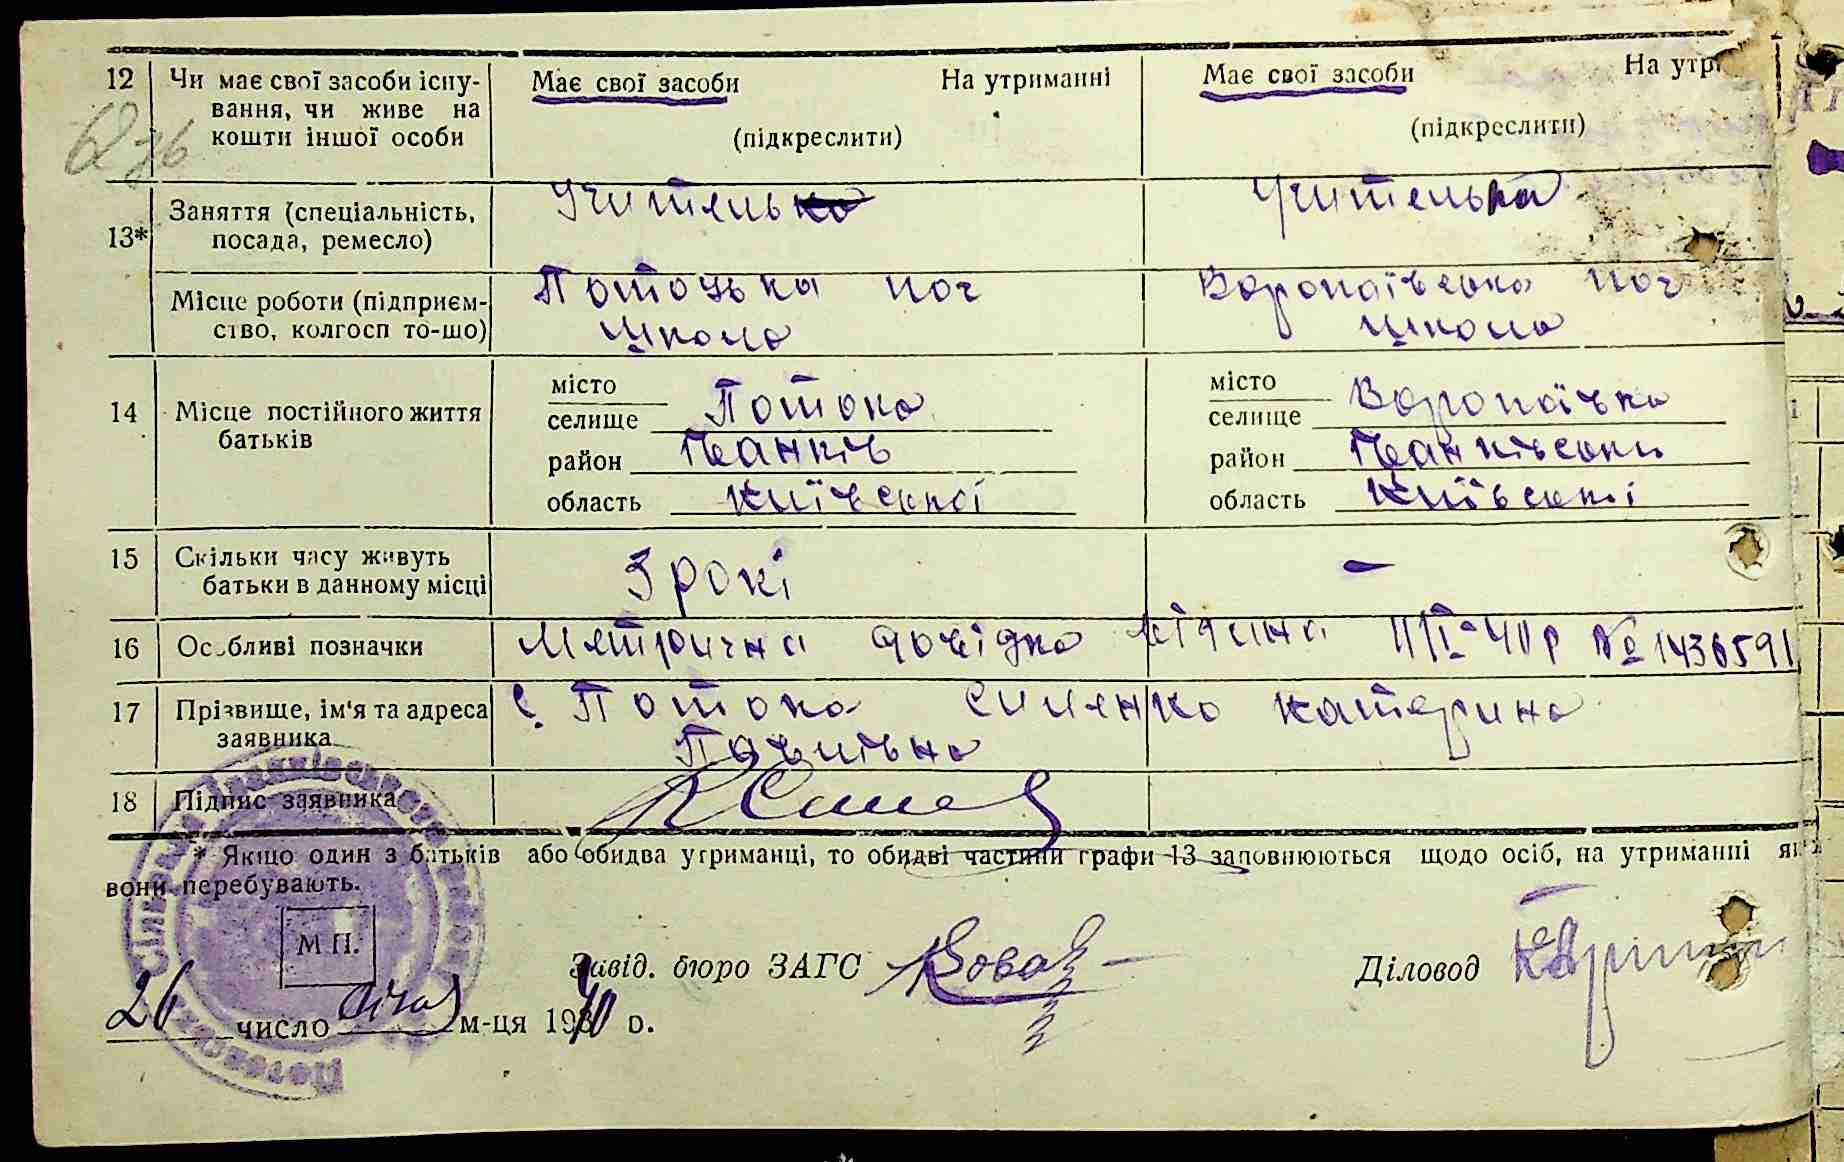 12 Чи має свої засоби існу- Має свої засоби На утриманні Має свої засоби На утр
вання, чи живе на
кошти іншої особи (підкреслити) (підкреслити)
13* Заняття (спеціальність, Учитель Учителька
посада, ремесло)
Місце роботи (підприєм- Потоцька поч Воропаївська поч
ство, колгосп то-що) школа школа
14 Місце постійного життя місто місто
батьків селище Потока селище Воропаївка
район район
область Київської область Київської
15 Скільки часу живуть 3 рокі –
батьки в данному місці
16 Особливі позначки Метрична довідка №1436591
17 Прізвище, ім'я та адреса с. Потока Катерина
заявника
18 Підпис заявника
* Якщо один з батьків або обидва утриманці, то обидві частини графи 13 заповнюються щодо осіб, на утриманні як
вони перебувають.
М П.
Завід. бюро ЗАГС Діловод
26 число січня м-ця 1940 р.